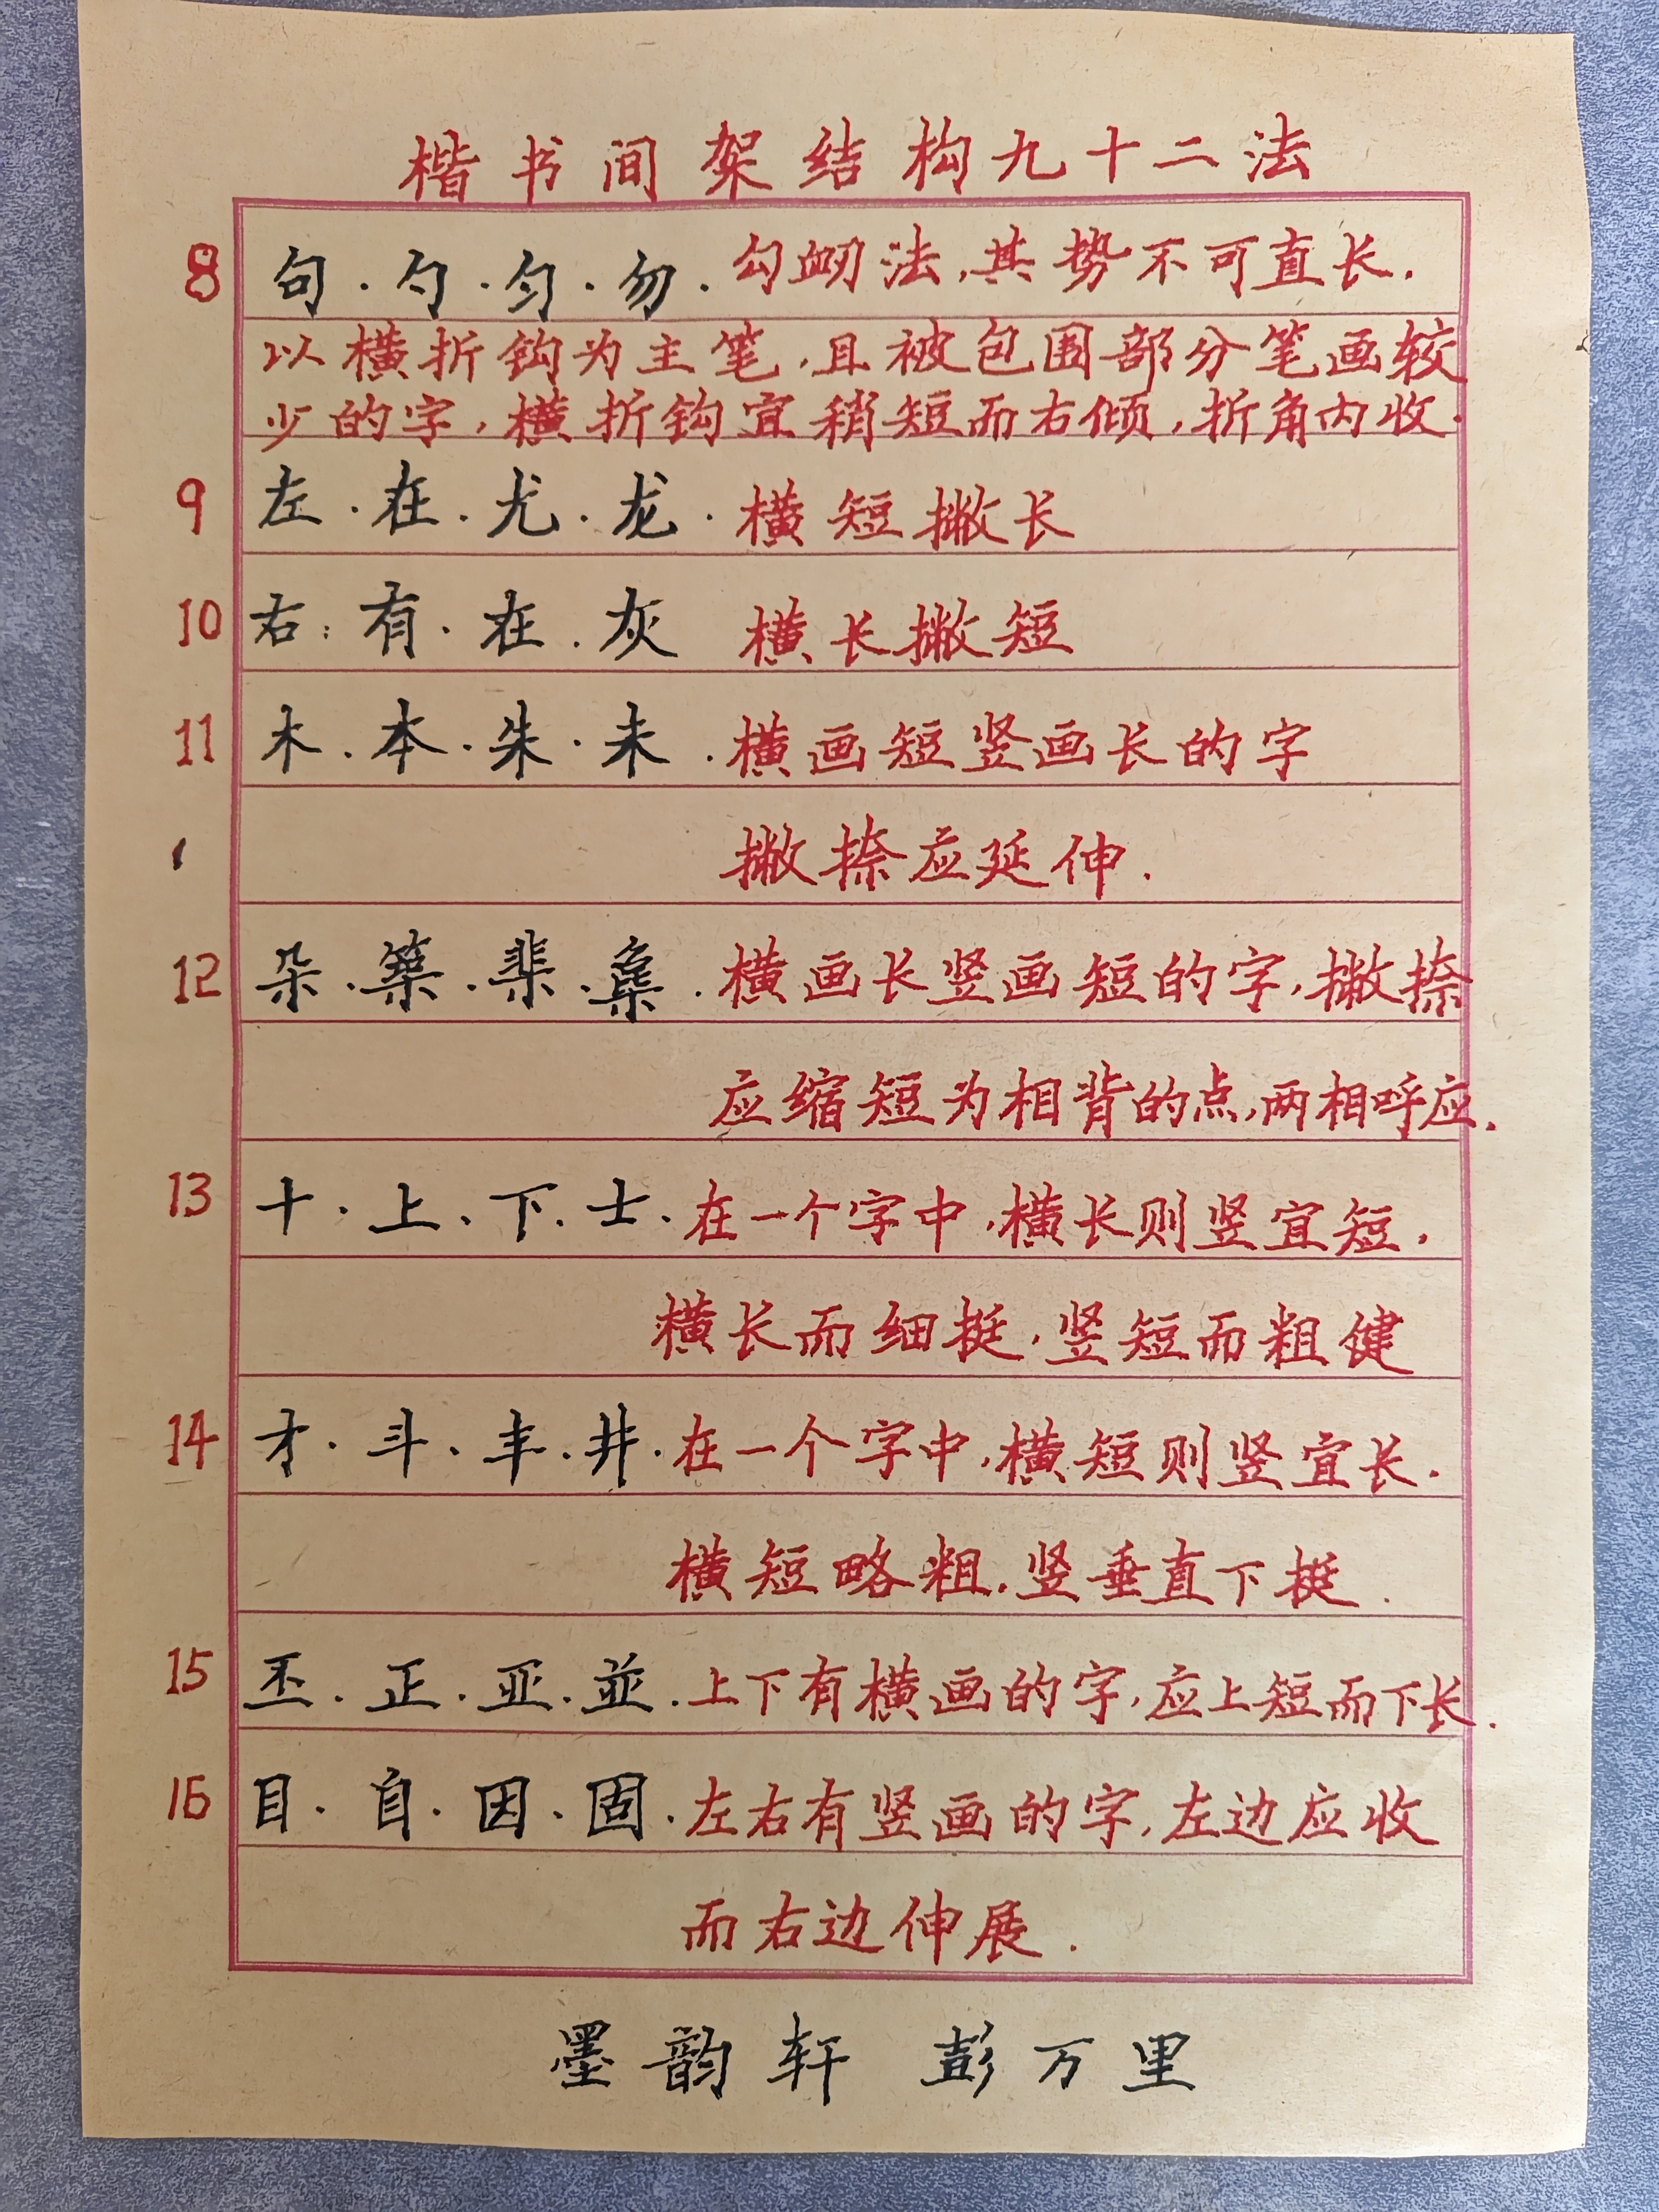 楷书间架结构九十二法
8 句·勺·匀·勿·勾法,其势不可直长.
以横折钩为主笔,且被包围部分笔画较
少的字,横折钩宜稍短而右倾,折角内收.
9 左·在·尤·龙·横短撇长
10 右:有·在·灰 横长撇短
11 木·本·朱·未·横画短竖画长的字
撇捺应延伸.
12 朵··集·横画长竖画短的字,撇捺
应缩短为相背的点,两相呼应.
13 十·上、下.士.在一个字中,横长则竖宜短,
横长而细挺,竖短而粗健
14 才·斗·丰·井·在一个字中,横短则竖宜长.
横短略粗.竖垂直下挺.
15 丕·正·亚·並·上下有横画的字,应上短而下长.
16 目·自·因·固·左右有竖画的字,左边应收
而右边伸展.
墨韵轩 彭万里